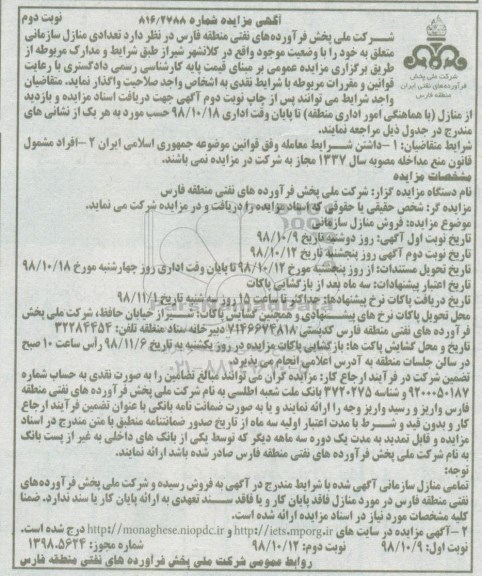 آگهی مزایده شماره ۸۱۶/۲۷۸۸
نوبت دوم
شرکت ملی پخش
فرآورده‌های نفتی ایران
منطقه فارس
شرکت ملی پخش فرآورده‌های نفتی منطقه فارس در نظر دارد تعدادی منازل سازمانی
متعلق به خود را با وضعیت موجود واقع در کلانشهر شیراز طبق شرایط و مدارک مربوطه از
طریق برگزاری مزایده عمومی بر مبنای قیمت پایه کارشناسی رسمی دادگستری با رعایت
قوانین و مقررات مربوطه با شرایط نقدی به اشخاص واجد صلاحیت واگذار نماید. متقاضیان
واجد شرایط می توانند پس از چاپ نوبت دوم آگهی جهت دریافت اسناد مزایده و بازدید
از منازل (با هماهنگی امور اداری منطقه) تا پایان وقت اداری ۹۸/۱۰/۱۸ حسب مورد به هر یک از نشانی های
مندرج در جدول ذیل مراجعه نمایند.
شرایط متقاضیان: ۱-داشتن شرایط معامله وفق قوانین موضوعه جمهوری اسلامی ایران ۲-افراد مشمول
قانون منع مداخله مصوبه سال ۱۳۳۷ مجاز به شرکت در مزایده نمی باشند.
مشخصات مزایده
نام دستگاه مزایده گزار: شرکت ملی پخش فرآورده های نفتی منطقه فارس
مزایده گر: شخص حقیقی یا حقوقی که اسناد مزایده را دریافت و در مزایده شرکت می نماید.
موضوع مزایده: فروش منازل سازمانی
تاریخ نوبت اول آگهی: روز دوشنبه تاریخ ۹۸/۱۰/۹
تاریخ نوبت دوم آگهی روز پنجشنبه تاریخ ۹۸/۱۰/۱۲
تاریخ تحویل مستندات: از روز پنجشنبه مورخ ۹۸/۱۰/۱۲ تا پایان وقت اداری روز چهارشنبه مورخ ۹۸/۱۰/۱۸
تاریخ اعتبار پیشنهادات: سه ماه بعد از بازگشایی پاکات
تاریخ دریافت پاکات نرخ پیشنهادها: حداکثر تا ساعت ۱۵ روز سه شنبه تاریخ ۹۸/۱۱/۱
محل تحویل پاکات نرخ های پیشنهادی و همچنین گشایش پاکات: شیراز خیابان حافظ، شرکت ملی پخش
فرآورده های نفتی منطقه فارس کدپستی ۷۱۴۶۶۷۴۸۱۸ دبیرخانه ستاد منطقه تلفن: ۳۲۲۸۴۴۵۴
تاریخ و محل گشایش پاکت ها: بازگشایی پاکات مزایده در روز یکشنبه به تاریخ ۹۸/۱۱/۶ رأس ساعت ۱۰ صبح
در سالن جلسات منطقه به آدرس اعلامی انجام می پذیرد.
تضمین شرکت در فرآیند ارجاع کار: مزایده گران می توانند مبالغ تضامین را به صورت نقدی به حساب شماره
۹۲۰۰۰۵۰۱۸۷ و شناسه ۳۷۲۰۲۷۵ بانک ملت شعبه اطلسی به نام شرکت ملی پخش فرآورده های نفتی منطقه
فارس واریز و رسید واریز وجه را ارائه نمایند و یا به صورت ضمانت نامه بانکی با عنوان تضمین فرآیند ارجاع
کار و بدون قید و شرط با مدت اعتبار اولیه سه ماه از تاریخ صدور ضمانتنامه منطبق با متن مندرج در اسناد
مزایده و قابل تمدید به مدت یک دوره سه ماهه دیگر که توسط یکی از بانک های داخلی به غیر از پست بانک
به نام شرکت ملی پخش فرآورده های نفتی منطقه فارس صادر شده باشد ارائه نمایند.
توجه:
تمامی منازل سازمانی آگهی شده با شرایط مندرج در آگهی به فروش رسیده و شرکت ملی پخش فرآورده‌های
نفتی منطقه فارس در مورد منازل فاقد پایان کار و یا فاقد سند تعهدی به ارائه پایان کار یا سند ندارد. ضمنا
کلیه مشخصات مورد نیاز در اسناد مزایده ارائه شده است.
۲ -آگهی مزایده در سایت های http://iets.mporg.ir و http://monaghese.niopdc.ir درج شده است.
نوبت اول: ۹۸/۱۰/۹ نوبت دوم: ۹۸/۱۰/۱۲ شماره مجوز: ۱۳۹۸.۵۶۲۴
روابط عمومی شرکت ملی پخش فرآورده های نفتی منطقه فارس